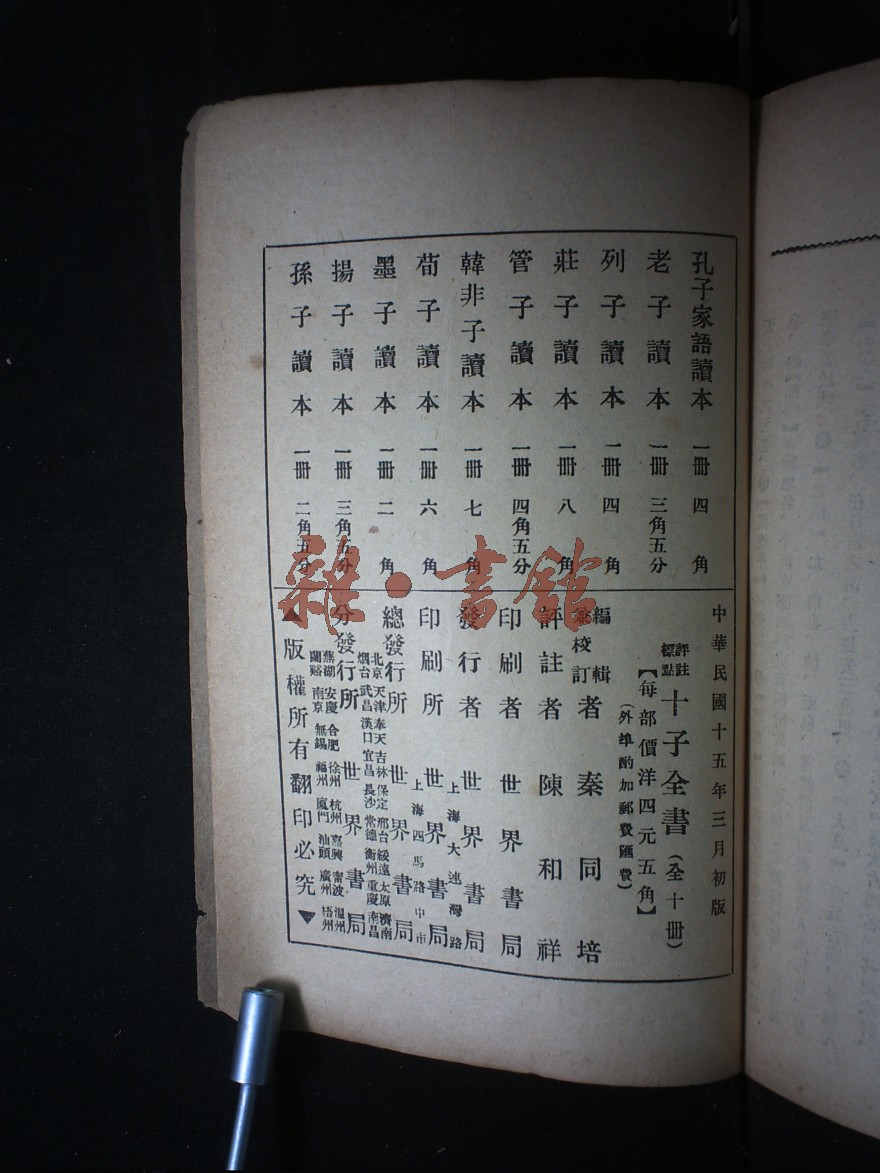 孔子家語讀本 一冊 四角
老子讀本 一冊 三角五分
列子讀本 一冊 四角
莊子讀本 一冊 八角
管子讀本 一冊 四角五分
韓非子讀本 一冊 七角
荀子讀本 一冊 六角
墨子讀本 一冊 二角
揚子讀本 一冊 三角五分
孫子讀本 一冊 二角五分
中華民國十五年三月初版
評註標點 十子全書（全十冊）
【每部價洋四元五角】
（外埠酌加郵費匯費）
編輯兼校訂者 秦同培
評註者 陳和祥
印刷者 世界書局
發行者 世界書局
上海大連灣路
印刷所 世界書局
上海四馬路中市
總發行所 世界書局
北京 天津 奉天 吉林 保定 邢台 綏遠 太原 濟南
烟台 武昌 漢口 宜昌 長沙 常德 衡州 重慶 南昌
分發行所 世界書局
蕪湖 安慶 合肥 徐州 杭州 嘉興 甯波 溫州
蘭谿 南京 無錫 福州 廈門 汕頭 廣州 梧州
▲版權所有翻印必究▼
雜·書館